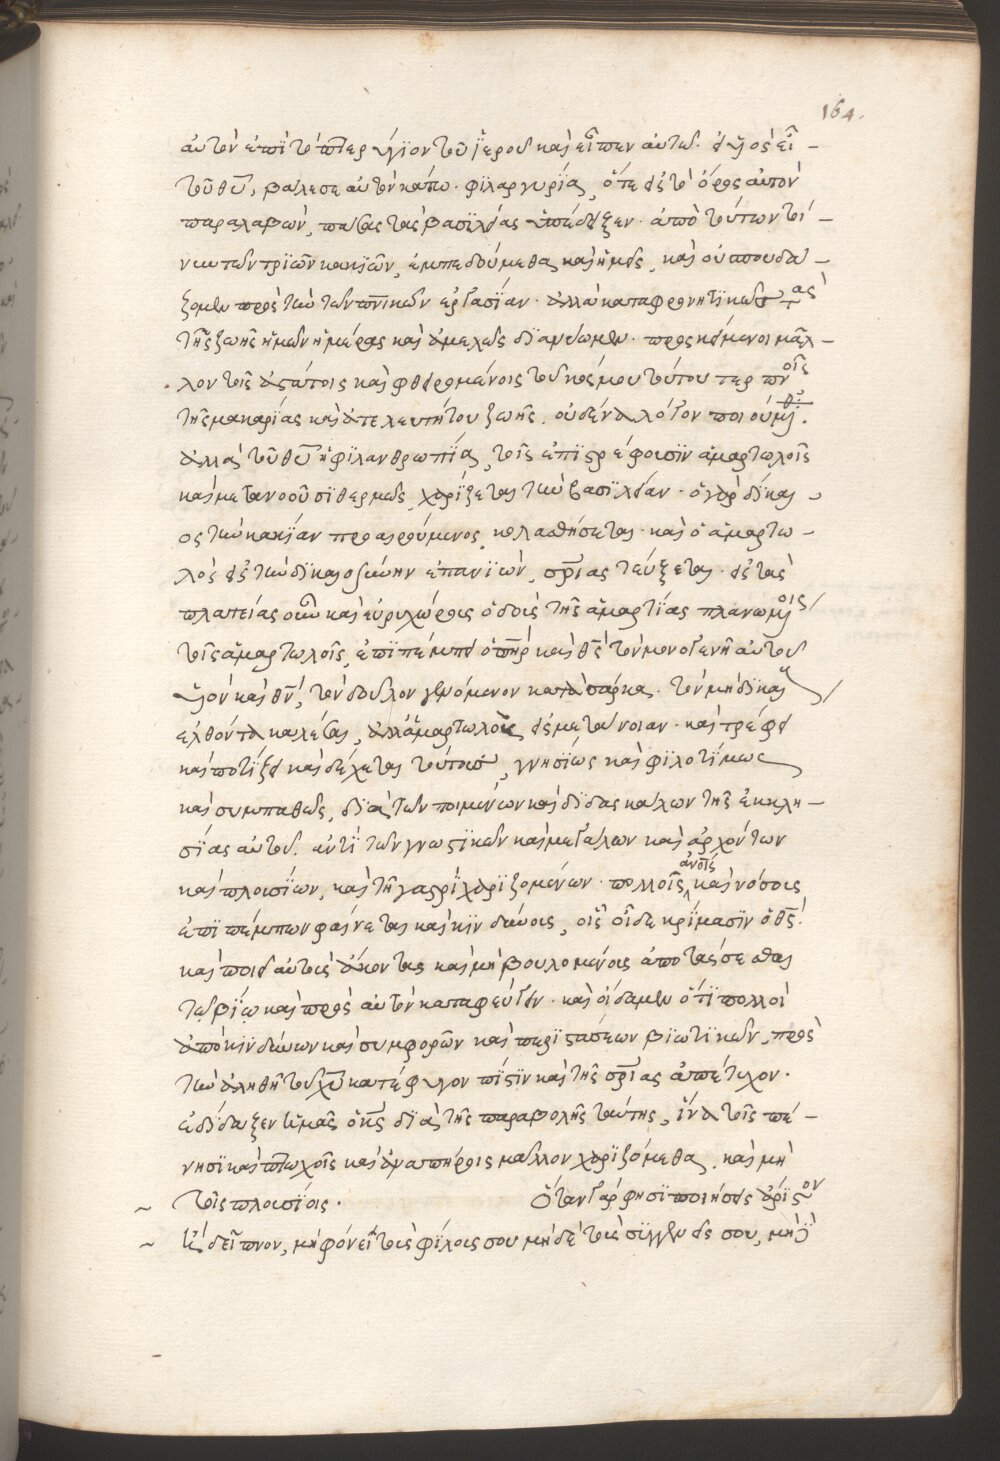 164.
αὐτὸν ἐπὶ τὸ πτερύγιον τοῦ ἱεροῦ καὶ εἶπεν αὐτῷ. εἰ υἱὸς εἶ
τοῦ θῦ, βάλε σεαυτὸν κάτω. φιλαργυρία, ὅτε εἰς τὸ ὄρος αὐτὸν
παραλαβὼν, πάσας τὰς βασιλείας ὑπέδειξεν. ἀπὸ τούτων τοί-
νυν τῶν τριῶν κακιῶν, ἐμπεδούμεθα καὶ ἡμεῖς, καὶ οὐ σπουδά-
ζομεν πρὸς τὴν τῶν πνικῶν ἐργασίαν. ἀλλὰ καταφρονητικῶς πάσας
τῆς ζωῆς ἡμῶν ἡμέρας καὶ ἀμελῶς διανύομεν. προσκείμενοι μᾶλ-
λον τοῖς ἀστάτοις καὶ φθειρομένοις τοῦ κόσμου τούτου τερπνοῖς
τῆς μακαρίας καὶ ἀτελευτήτου ζωῆς. οὐδένα λόγον ποιούμεθα.
ἀλλὰ τοῦ θῦ ἡ φιλανθρωπία, τοῖς ἐπιστρέφουσιν ἁμαρτωλοῖς
καὶ μετανοοῦσι θερμῶς, χαρίζεται τὴν βασιλείαν. ὁ γὰρ δίκαι-
ος τὴν κακίαν προαιρούμενος, κολασθήσεται. καὶ ὁ ἁμαρτω-
λὸς εἰς τὴν δικαιοσύνην ἐπανιὼν, σρίας τεύξεται. εἰς τὰς
πλατείας οὖν καὶ εὐρυχώρους ὁδοὺς τῆς ἁμαρτίας πλανωμένοις
τοῖς ἁμαρτωλοῖς, ἐπιπέμπει ὁ πὴρ καὶ θς τὸν μονογενῆ αὐτοῦ
υἱὸν καὶ θν, τὸν δοῦλον γενόμενον κατὰ σάρκα. τὸν μὴ δικαίους
ἐλθόντα καλέσαι, ἀλλ' ἁμαρτωλοὺς εἰς μετάνοιαν. καὶ τρέφει
καὶ ποτίζει καὶ δέχεται τούτους, γνησίως καὶ φιλοτίμως
καὶ συμπαθῶς, διὰ τῶν ποιμένων καὶ διδασκάλων τῆς ἐκκλη-
σίας αὐτοῦ. ἀντὶ τῶν γνωστικῶν καὶ μεγάλων καὶ ἀρχόντων
καὶ πλουσίων, καὶ τῇ γαστρὶ χαριζομένων. πολλοῖς ἀνοις καὶ νόσους
ἐπιπέμπων φαίνεται καὶ κινδύνους, οἷς οἶδε κρίμασιν ὁ θς.
καὶ ποιεῖ αὐτοὺς ἄκοντας καὶ μὴ βουλομένους ἀποτάξεσθαι
τῷ βίῳ καὶ πρὸς αὐτὸν καταφεύγειν. καὶ οἴδαμεν ὅτι πολλοὶ
ἀπὸ κινδύνων καὶ συμφορῶν καὶ περιστάσεων βιωτικῶν, πρὸς
τὴν ἀληθῆ τοῦ χῦ κατέφυγον πίστιν καὶ τῆς σρίας ἐπέτυχον.
ἐδίδαξεν ἡμᾶς ὁ κς διὰ τῆς παραβολῆς ταύτης, ἵνα τοῖς πέ-
νησι καὶ πτωχοῖς καὶ ἀναπήροις μᾶλλον χαριζόμεθα, καὶ μὴ
τοῖς πλουσίοις. Ὅταν γάρ φησι ποιήσεις ἄριστον
ἢ δεῖπνον, μὴ φώνει τοὺς φίλους σου μηδὲ τοὺς συγγενεῖς σου, μὴ δὲ